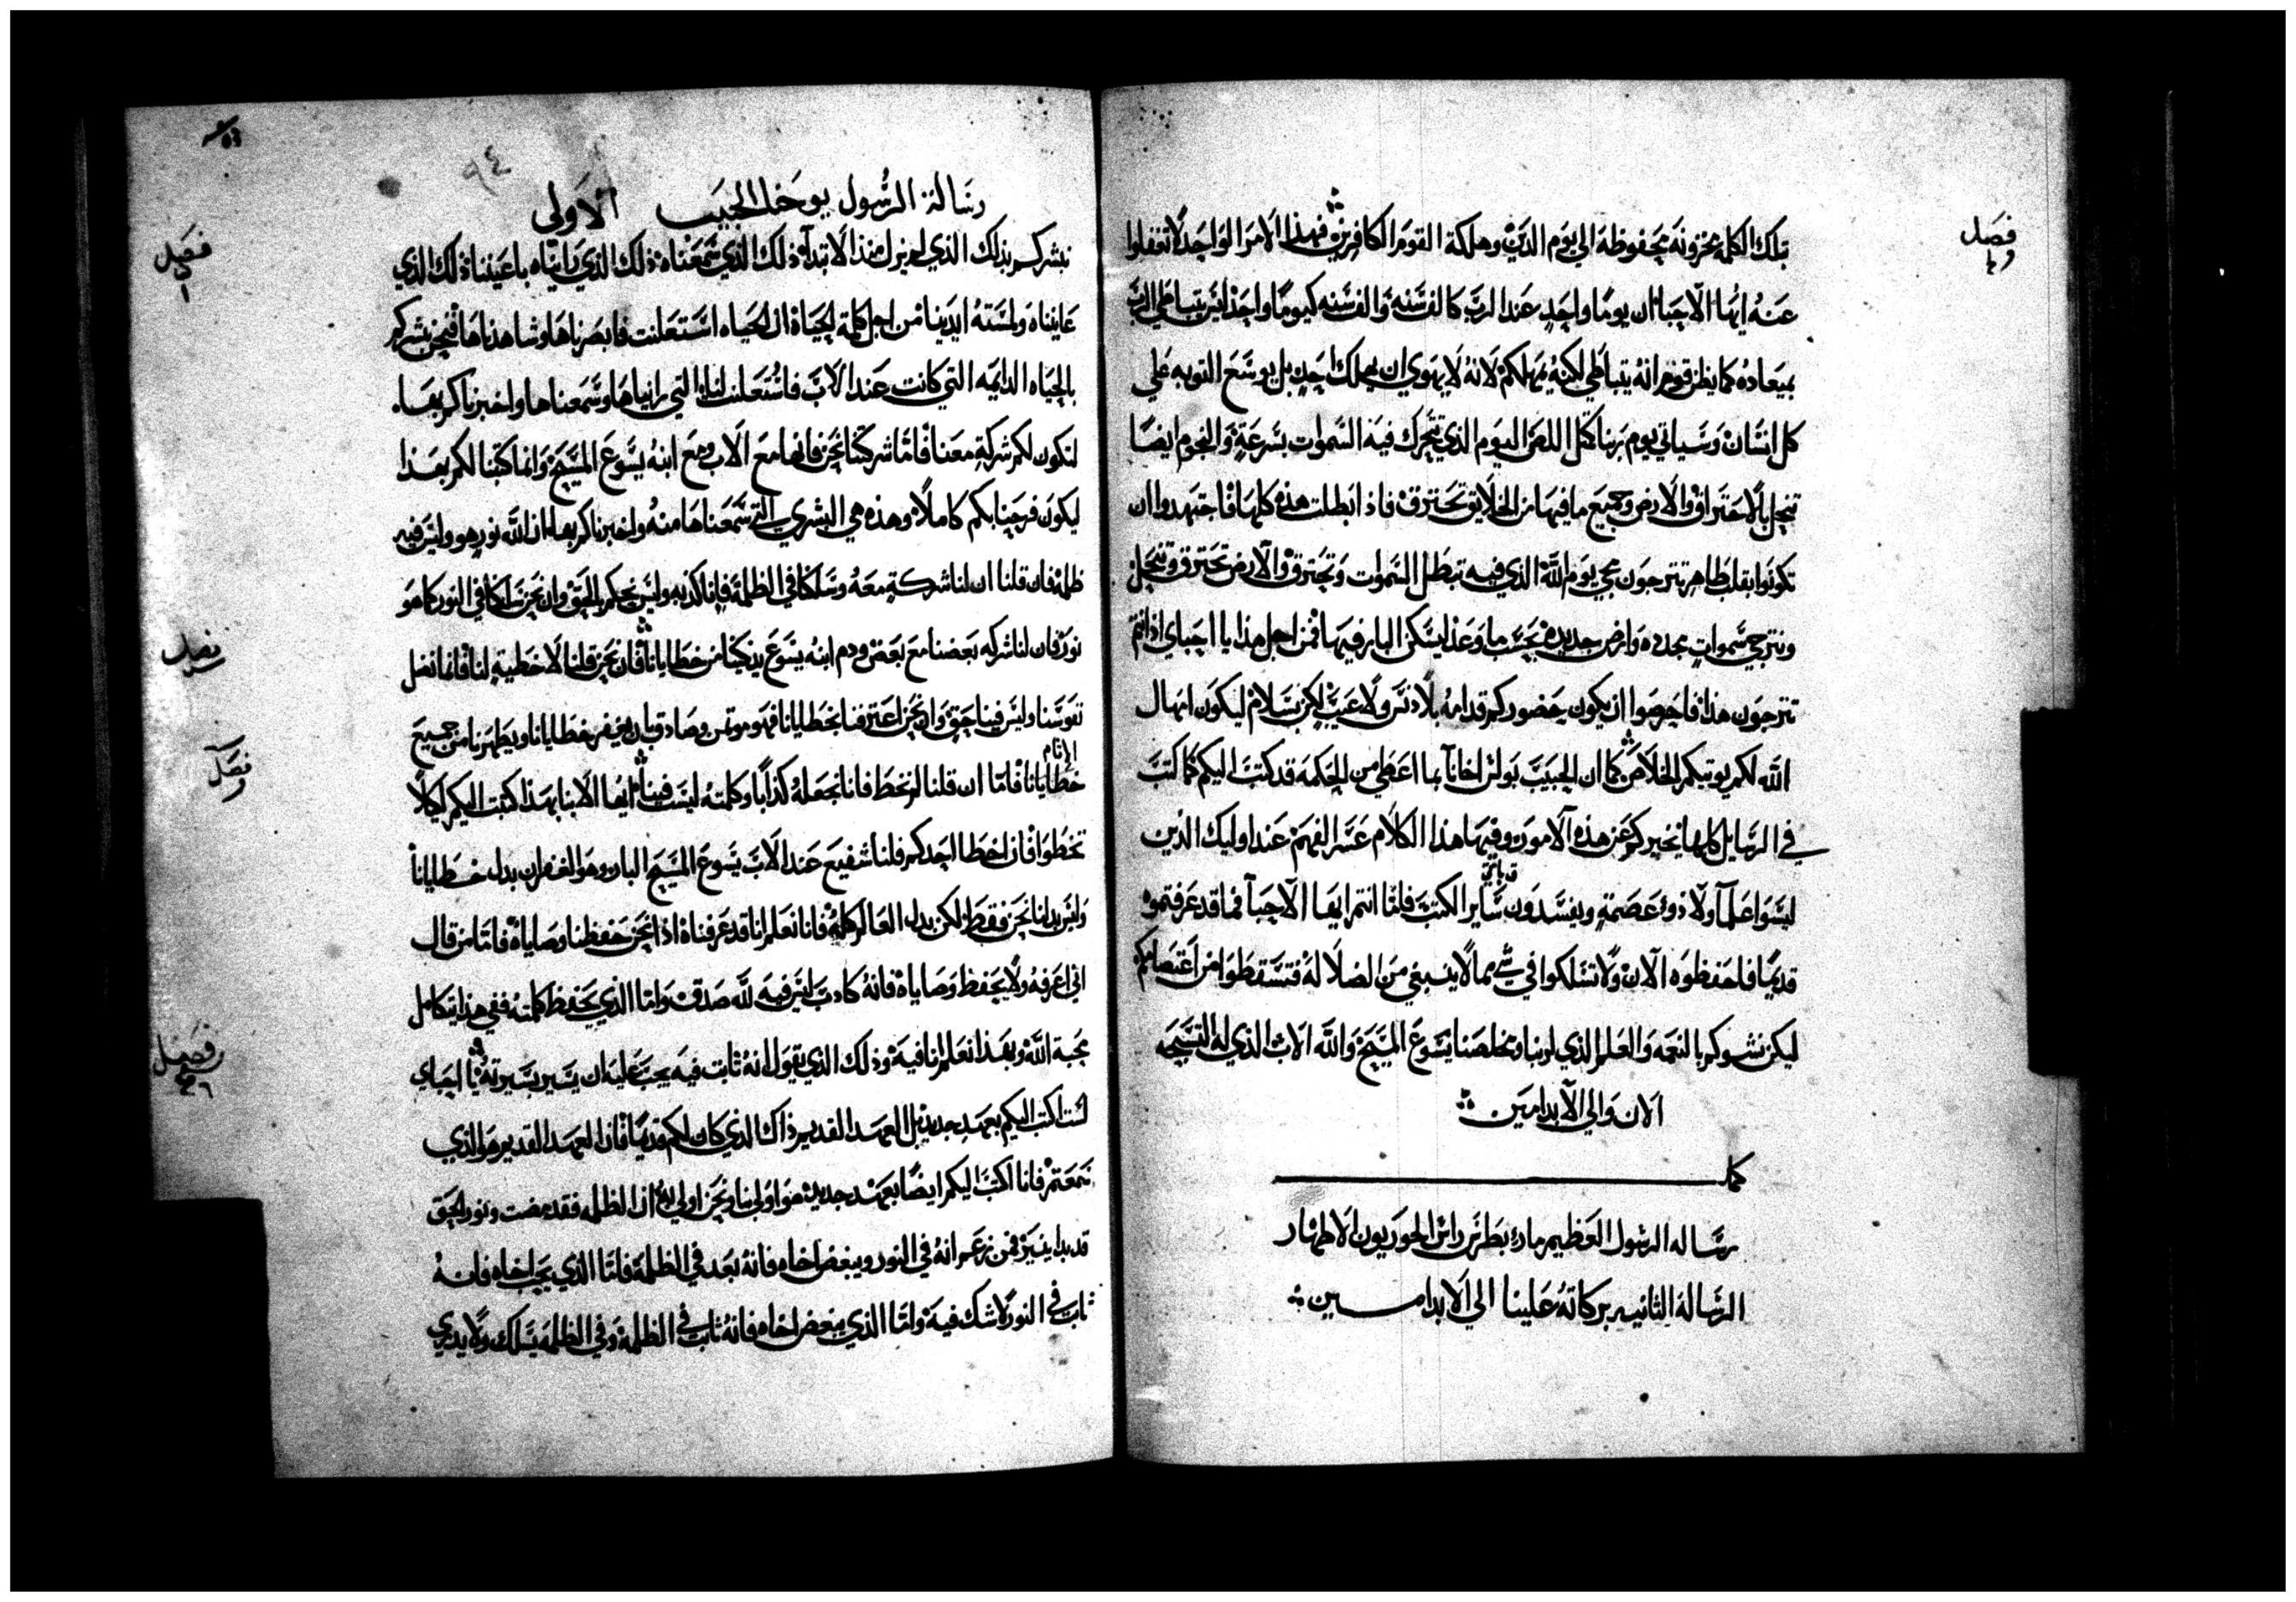 فصل
بتلك الكلمه مخزونه محفوظة الي يوم الدين وهلكة القوم الكافرين فهذا الامر الواحد لا تغفلوا
عنه ايها الاحبا ان يوما واحد عند الرب كالف سنه والف سنه كيوما واحد ليس يتباطي الرب
بميعاده كما يظن قوم انه يتباطي لكنه يمهلكم لانه لا يهوي ان يهلك احد بل يوسع التوبه علي
كل انسان وسياتي يوم ربنا كمثل اللص اليوم الذي تتحرك فيه السموات بسرعة والنجوم ايضا
تنحل بالاحتراق والارض وجميع ما فيها من الخلايق تحترق فاذ ابطلت هذه كلها فاجتهدوا ان
تكونوا بقلب طاهر تترجون مجي يوم الله الذي فيه تبطل السموات وتحترق والارض تحترق وتنحل
ونترجي سموات مجدده وارض جديده بحسب ما وعد ليسكن البار فيها فمن اجل هذا يا احباي اذ انتم
تترجون هذا فاحرصوا ان يكون حضوركم قدامه بلا دنس ولا عيب لكن بسلام ليكون امهال
الله لكم يوتيكم الخلاص كما ان الحبيب بولس اخانا بما اعطي من الحكمه قد كتب اليكم كما كتب
في الرسايل كلها يخبركم عن هذه الامور وفيها هذا الكلام عسر الفهم عند اوليك الذين
ليسوا علما ولا ذوي عصمة ويفسدون ساير الكتب فاما انتم ايها الاحبا فما قد عرفتموه
قديما فاحفظوه الان ولا تسلكوا في شي مما لا ينبغي من الضلالة فتسقطوا من اعتصامكم
ليكن نشوكم بالنعمه والعلم الذي لربنا ومخلصنا يسوع المسيح والله الاب الذي له التسبحه
الان والي الابد امين
كمل
رساله الرسول العظيم ماري بطرس راس الحوريون الاطهار
الرسالة الثانيه بركاته علينا الي الابد امين
٩٤
رسالة الرسول يوحنا الحبيب الاولي
فصل ١
نبشركم بذلك الذي لم يزل منذ الابتداء ذلك الذي سمعناه ذلك الذي رايناه باعيننا ذلك الذي
عايناه ولمسته ايدينا من اجل كلمة الحياة ان الحياه استعلنت فابصرناها وشاهدناها فنحن نبشركم
بالحياه الدايمه التي كانت عند الاب فاستعلنت لنا التي رايناها وسمعناها واخبرناكم بها
لتكون لكم شركة معنا فاما شركتنا نحن فانها مع الاب ومع ابنه يسوع المسيح وانما كتبنا لكم بهذا
ليكون فرحنا بكم كاملا وهذه هي البشري التي سمعناها منه واخبرناكم بها ان الله نور هو وليس فيه
ظلمة فان قلنا ان لنا شركة معه وسلكنا في الظلمة فانا كذبه وليس نحكم بالحق وان نحن سلكنا في النور كما هو
فصل
نور فان لنا شركه بعضنا مع بعض ودم ابنه يسوع يزكينا من خطايانا فان نحن قلنا الا خطية لنا فانما نضل
نفوسنا وليس فينا حق وان نحن اعترفنا بخطايانا فهو موتمن وصادق بان يغفر خطايانا ويطهرنا من جميع
فصل
الاثام
خطايانا فاما ان قلنا لم نخط فانا نجعله كذابا وكلمته ليست فينا ايها الابنا بهذا كتبت اليكم لكيلا
تخطوا فان اخطا احدكم فلنا شفيع عند الاب يسوع المسيح البار وهو الغفران بدل خطايانا
وليس بدلنا نحن فقط لكن بدل العالم كله فانا نعلم انا قد عرفناه اذا نحن حفظنا وصاياه فاما من قال
اني اعرفه ولا يحفظ وصاياه فانه كاذب ليس فيه لله صدق واما الذي يحفظ كلمته ففي هذا يتكامل
فصل
محبة الله وبهذا نعلم انا فيه وذلك الذي يقول انه ثابت فيه يجب عليه ان يسير بسيرته يا احباي
لست اكتب اليكم بعهد جديد بل العهد القديم ذاك الذي كان لكم قديما فان العهد القديم هو الذي
سمعتم فانا اكتب اليكم ايضا بعهد جديد هو اولي بنا ونحن اولي به ان الظلمه فقد مضت ونور الحق
قد بدا ينير فمن زعم انه في النور ويبغض اخاه فانه بعد في الظلمة فاما الذي يحب اخاه فانه
ثابت في النور لا شك فيه واما الذي يبغض اخاه فانه ثابت في الظلمة وفي الظلمة يسلك ولا يدري